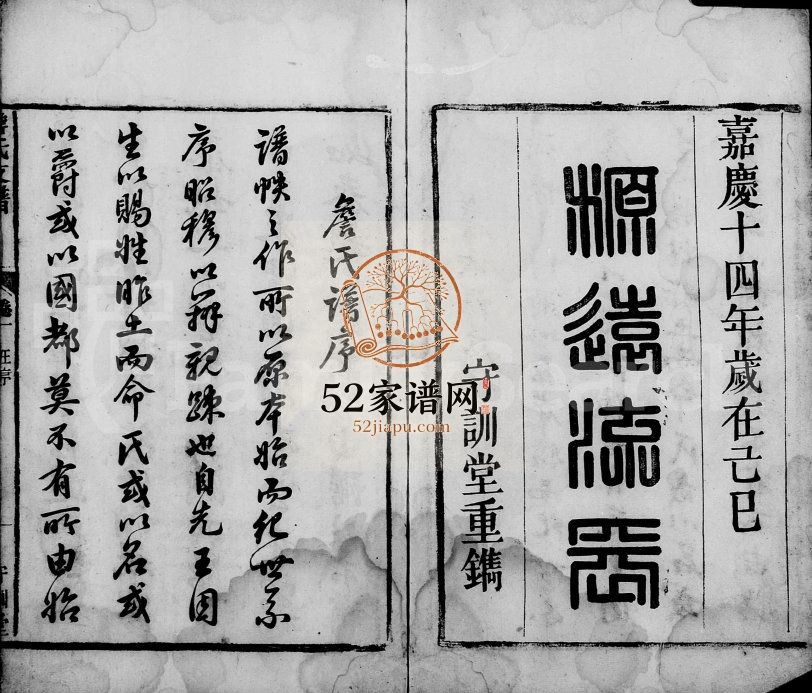 嘉慶十四年歲在己巳
源遠流長
守訓堂重鐫
詹氏譜序
譜帙之作所以原本始而紀世系
序昭穆以辨親踈也自先王因
生以賜姓胙土而命氏或以名或
以爵或以國都莫不有所由始
52家谱网
52jiapu.com